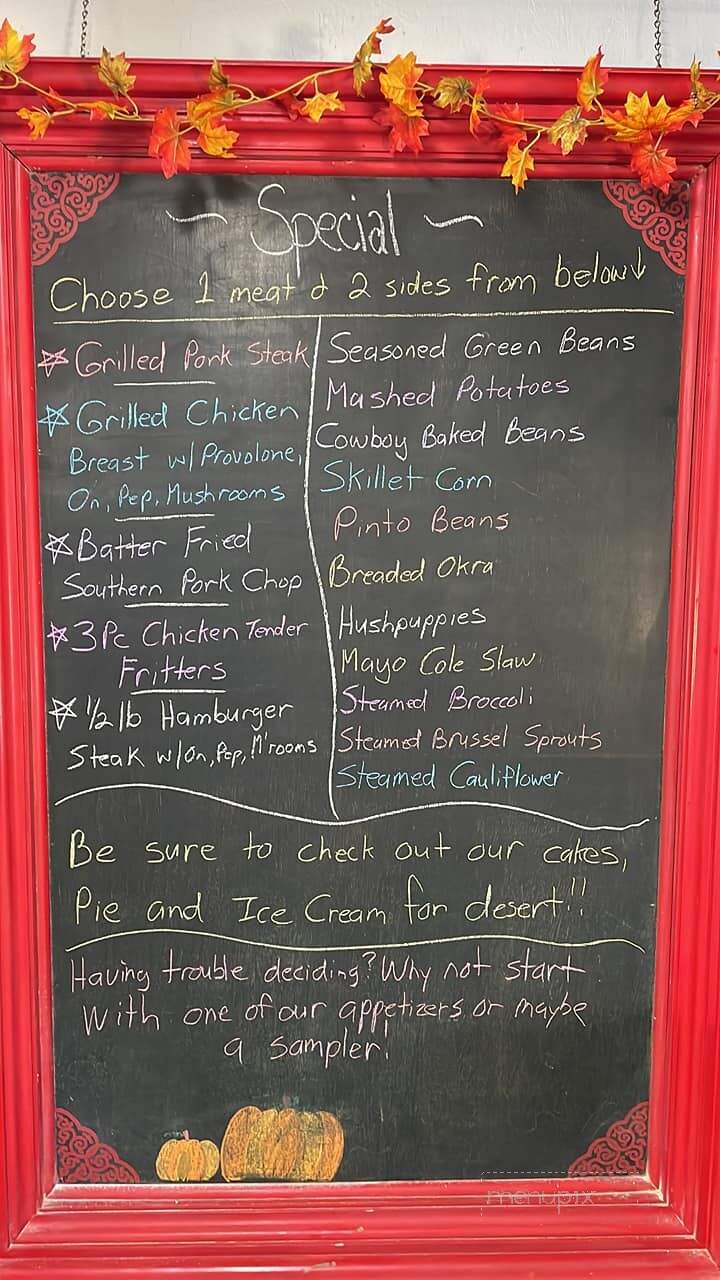 ~ Special ~
Choose 1 meat & 2 sides from below↓
☆ Grilled Pork Steak
☆ Grilled Chicken
Breast w/ Provolone,
On, Pep, Mushrooms
☆ Batter Fried
Southern Pork Chop
☆ 3 Pc Chicken Tender
Fritters
☆ 1/2 lb Hamburger
Steak w/ On, Pep, M'rooms
Seasoned Green Beans
Mashed Potatoes
Cowboy Baked Beans
Skillet Corn
Pinto Beans
Breaded Okra
Hushpuppies
Mayo Cole Slaw
Steamed Broccoli
Steamed Brussel Sprouts
Steamed Cauliflower
Be sure to check out our cakes,
Pie and Ice Cream for desert!!
Having trouble deciding? Why not start
with one of our appetizers or maybe
a sampler!
menupix